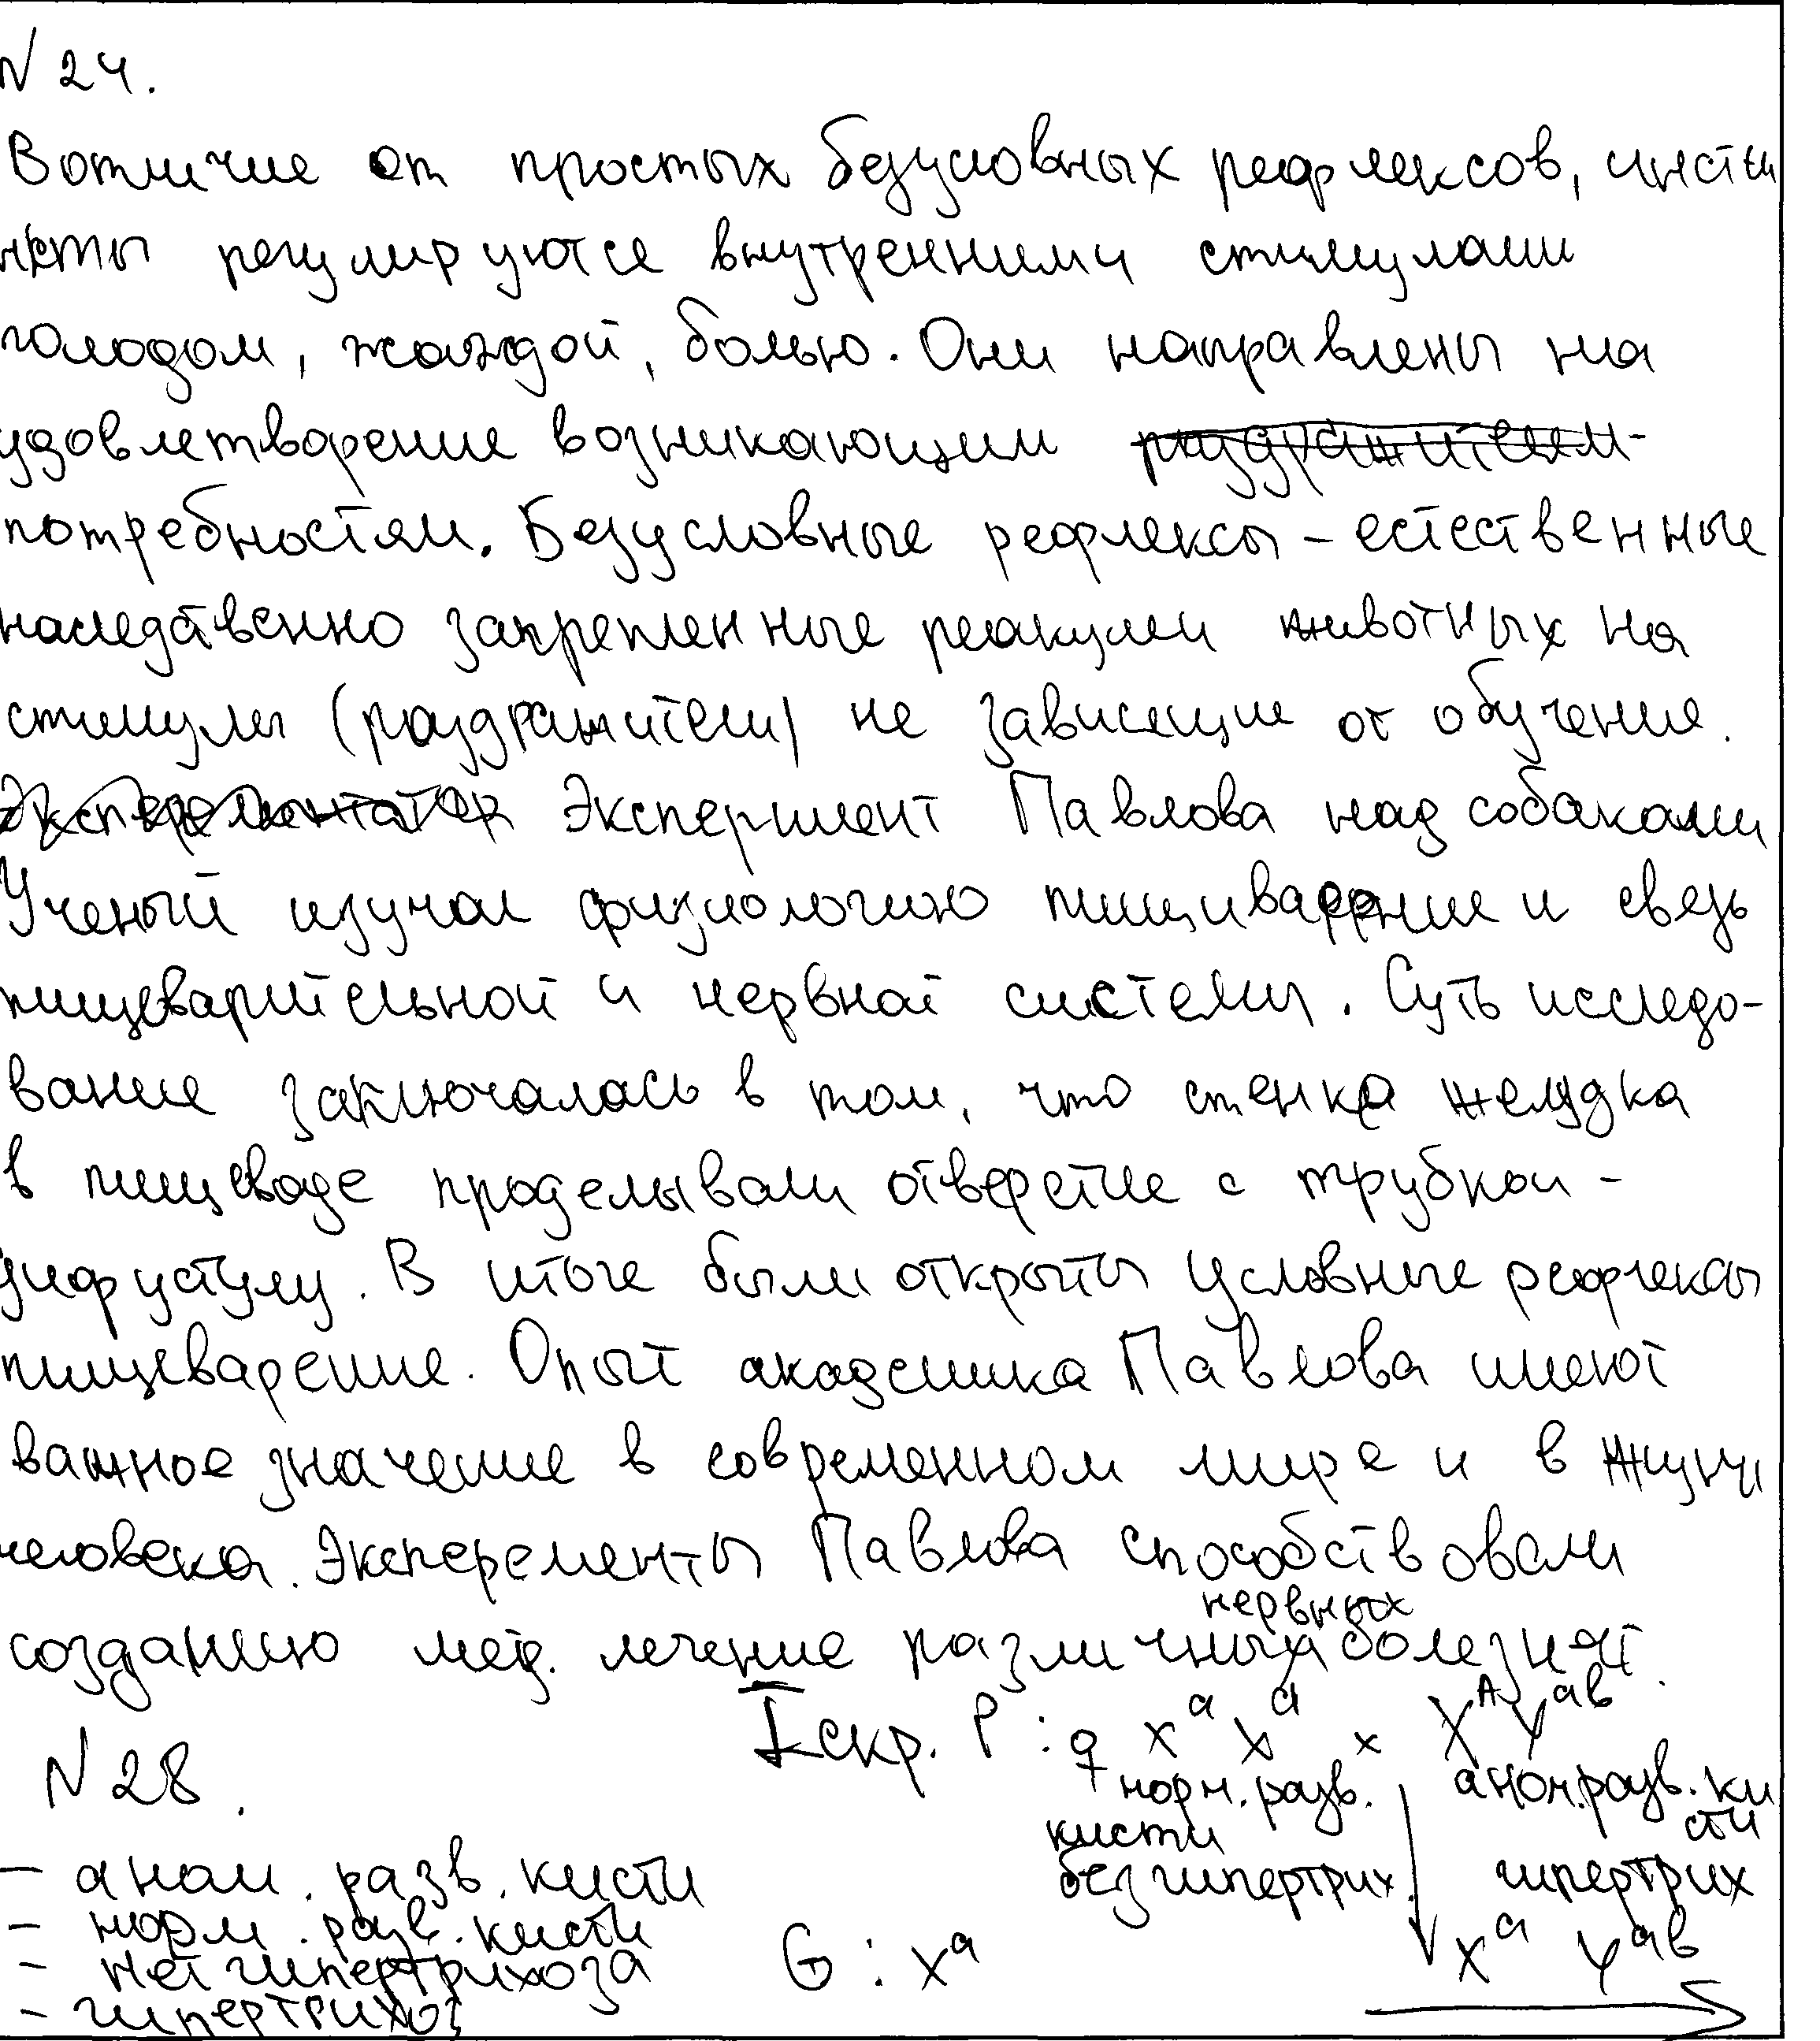 N 24.
В отличие от простых безусловных рефлексов, инсти
нкты регулируются внутренними стимулами
голодом, жаждой, болью. Они направлены на
удовлетворение возникающим раздражителем
потребностям. Безусловные рефлексы - естественные
наследственно закрепленные реакции животных на
стимулы (раздражители) не зависящие от обучение.
Эксперементатор Эксперимент Павлова над собаками
Ученый изучал физиологию пищиварение и связь
пищеварительной и нервной системы. Суть исследо-
вание заключалась в том, что стенка желудка
в пищеводе проделывали отверстие с трубкой -
условные рефлексы В итоге были открыты
пищеварение. Опыт академика Павлова имеют
важное значение в современном мире и в жизни
человека. Эксперементы Павлова способствовали
созданию мед. лечение различных нервных болезней.
N 28.
- аном. разв. кисти
- норм. разв. кисти
- нет гипертрихоза
- гипертрихоз
I скр. P : ♀ X^a X^a × X^A Y^ab
норм. разв. аном. разв. ки
кисти сти
без гипертрих. гипертрих
G : X^a X^a Y^ab